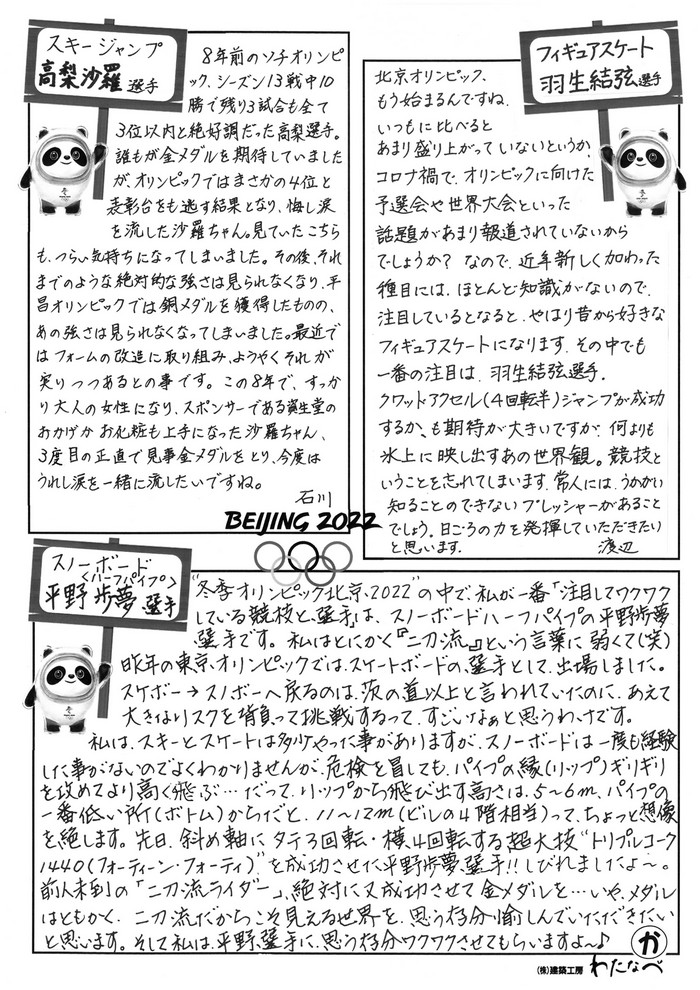 スキージャンプ
高梨沙羅選手
8年前のソチオリンピ
ック、シーズン13戦中10
勝で残り3試合も全て
3位以内と絶好調だった高梨選手。
誰もが金メダルを期待していました
が、オリンピックではまさかの4位と
表彰台をも逃す結果となり、悔し涙
を流した沙羅ちゃん。見ていたこちら
も、つらい気持ちになってしまいました。その後、それ
までのような絶対的な強さは見られなくなり、平
昌オリンピックでは銅メダルを獲得したものの、
あの強さは見られなくなってしまいました。最近で
はフォームの改造に取り組み、ようやくそれが
実りつつあるとの事です。この8年で、すっか
り大人の女性になり、スポンサーである資生堂の
おかげかお化粧も上手になった沙羅ちゃん、
3度目の正直で見事金メダルをとり、今度は
うれし涙を一緒に流したいですね。
石川
フィギュアスケート
羽生結弦選手
北京オリンピック、
もう始まるんですね。
いつもに比べると
あまり盛り上がっていないというか、
コロナ禍で、オリンピックに向けた
予選会や世界大会といった
話題があまり報道されていないから
でしょうか？なので、近年新しく加わった
種目には、ほとんど知識がないので、
注目しているとなると、やはり昔から好きな
フィギュアスケートになります。その中でも
一番の注目は、羽生結弦選手。
クワットアクセル(4回転半)ジャンプが成功
するか、も期待が大きいですが、何よりも
氷上に映し出すあの世界観。競技と
いうことを忘れてしまいます。常人には、うかがい
知ることのできないプレッシャーがあること
でしょう。日ごろの力を発揮していただきたい
と思います。 渡辺
BEIJING 2022
スノーボード
<ハーフパイプ>
平野歩夢選手
"冬季オリンピック北京、2022"の中で、私が一番「注目してワクワク
している競技と、選手」は、スノーボードハーフパイプの平野歩夢
選手です。私はとにかく『二刀流』という言葉に弱くて(笑)
昨年の東京、オリンピックでは、スケートボードの、選手として、出場しました。
スケボー→スノボーへ戻るのは、茨の道以上と言われていたのに、あえて
大きなリスクを背負って挑戦するって、すごいなぁと思うわけです。
私は、スキーとスケートは多少やった事がありますが、スノーボードは一度も経験
した事がないのでよくわかりませんが、危険を冒しても、パイプの縁(リップ)ギリギリ
を攻めてより高く飛ぶ…だって、リップから飛び出す高さは、5～6m、パイプの
一番低い所(ボトム)からだと、11～12m(ビルの4階相当)って、ちょっと想像
を絶します。先日、斜め軸にタテ3回転・横4回転する超大技"トリプルコーク
1440(フォーティーン・フォーティ)"を成功させた平野歩夢選手!!しびれましたよ～。
前人未到の「二刀流ライダー」、絶対に又成功させて金メダルを…いや、メダル
はともかく、二刀流だからこそ見える世界を、思う存分愉しんでいただきたい
と思います。そして私は、平野、選手に、思う存分ワクワクさせてもらいますよ～♪
か
(株)建築工房 わたなべ